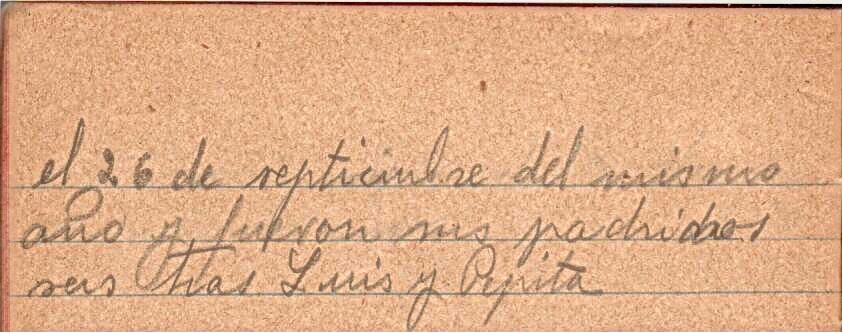 el 26 de septiembre del mismo
año y fueron sus padrinos
sus tias Luis y Pepita